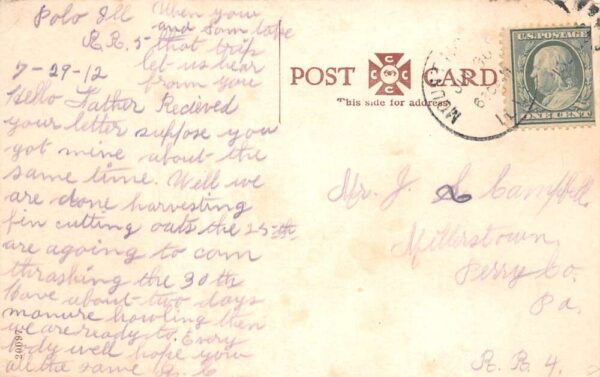 Polo Ill
R.R. 5
7-29-12
Hello Father Recieved
your letter suppose you
got mine about the
same time. Well we
are done harvesting
fin cutting oats the 25-th
are agoing to com
thrashing the 30th
have about two days
manure howling then
we are ready to. Every
body well hope you
all the same
When you
and Sam take
that trip
let us hear
from you
POST CARD
This side for address
U.S. POSTAGE
ONE CENT
Mr. J. L. Campbell
Millerstown
Perry Co.
Pa.
R.R. 4.
20097